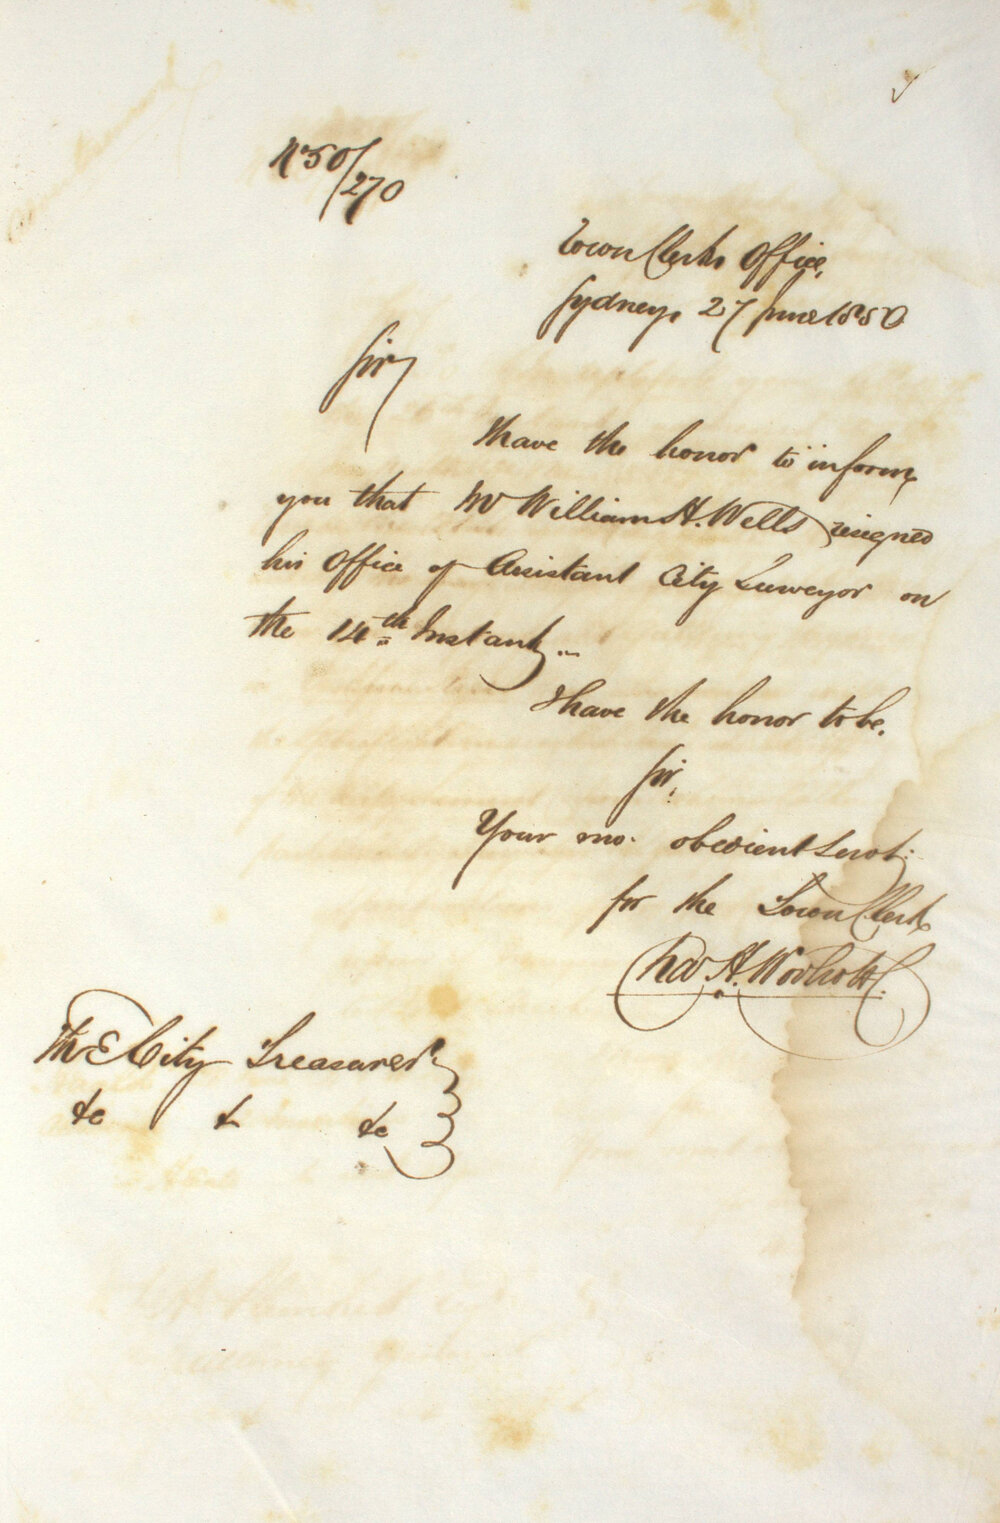 No 50/270
Town Clerks Office,
Sydney, 27 June 1850
Sir,
I have the honor to inform
you that Mr William H. Wells resigned
his Office of Assistant City Surveyor on
the 14th Instant,
I have the honor to be,
Sir,
Your mo. obedient Servt.
for the Town Clerk
Chas H. Woolcott
The City Treasurer
&c & &c